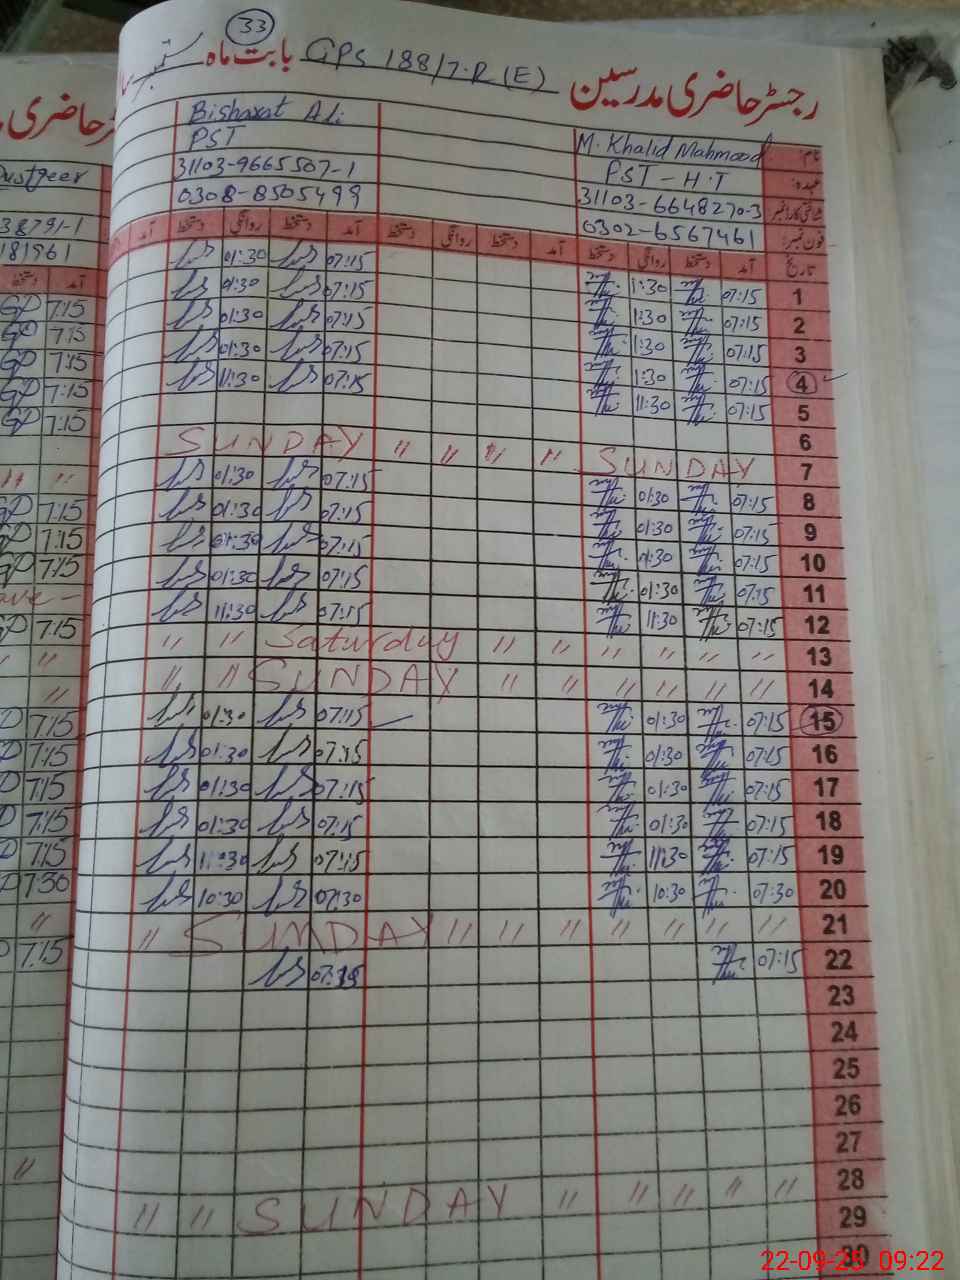 33
رجسٹر حاضری مدرسین GPS 188/7-R (E) بابت ماہ ستمبر
نام: M. Khalid Mahmood Bisharat Ali
عہدہ: PST - H.T PST
شناختی کارڈ نمبر 31103-6648270-3 31103-9665507-1
فون نمبر: 0302-6567461 0308-8505499
تاریخ آمد دستخط روانگی دستخط آمد دستخط روانگی دستخط آمد دستخط روانگی دستخط آمد
1 07:15 1:30 07:15 01:30
2 07:15 1:30 07:15 01:30
3 07:15 1:30 07:15 01:30
4 07:15 1:30 07:15 01:30
5 07:15 11:30 07:15 11:30
6
7 SUNDAY " " " " SUNDAY
8 07:15 01:30 07:15 01:30
9 07:15 01:30 07:15 01:30
10 07:15 01:30 07:15 01:30
11 07:15 01:30 07:15 01:30
12 07:15 11:30 07:15 11:30
13 " " Saturday " " " " " "
14 " " SUNDAY " " " " " "
15 07:15 01:30 07:15 01:30
16 07:15 01:30 07:15 01:30
17 07:15 01:30 07:15 01:30
18 07:15 01:30 07:15 01:30
19 07:15 11:30 07:15 11:30
20 07:30 10:30 07:30 10:30
21 " SUNDAY " " " " " " "
22 07:15 07:15
23
24
25
26
27
28 " " SUNDAY " " " " "
29
30
حاضری
38791-1
181961
آمد دستخط
7:15
7:15
7:15
7:15
7:15
" "
7:15
7:15
7:15
7:15
" "
"
7:15
7:15
7:15
7:15
7:15
7:30
"
7:15
"
22-09-25 09:22